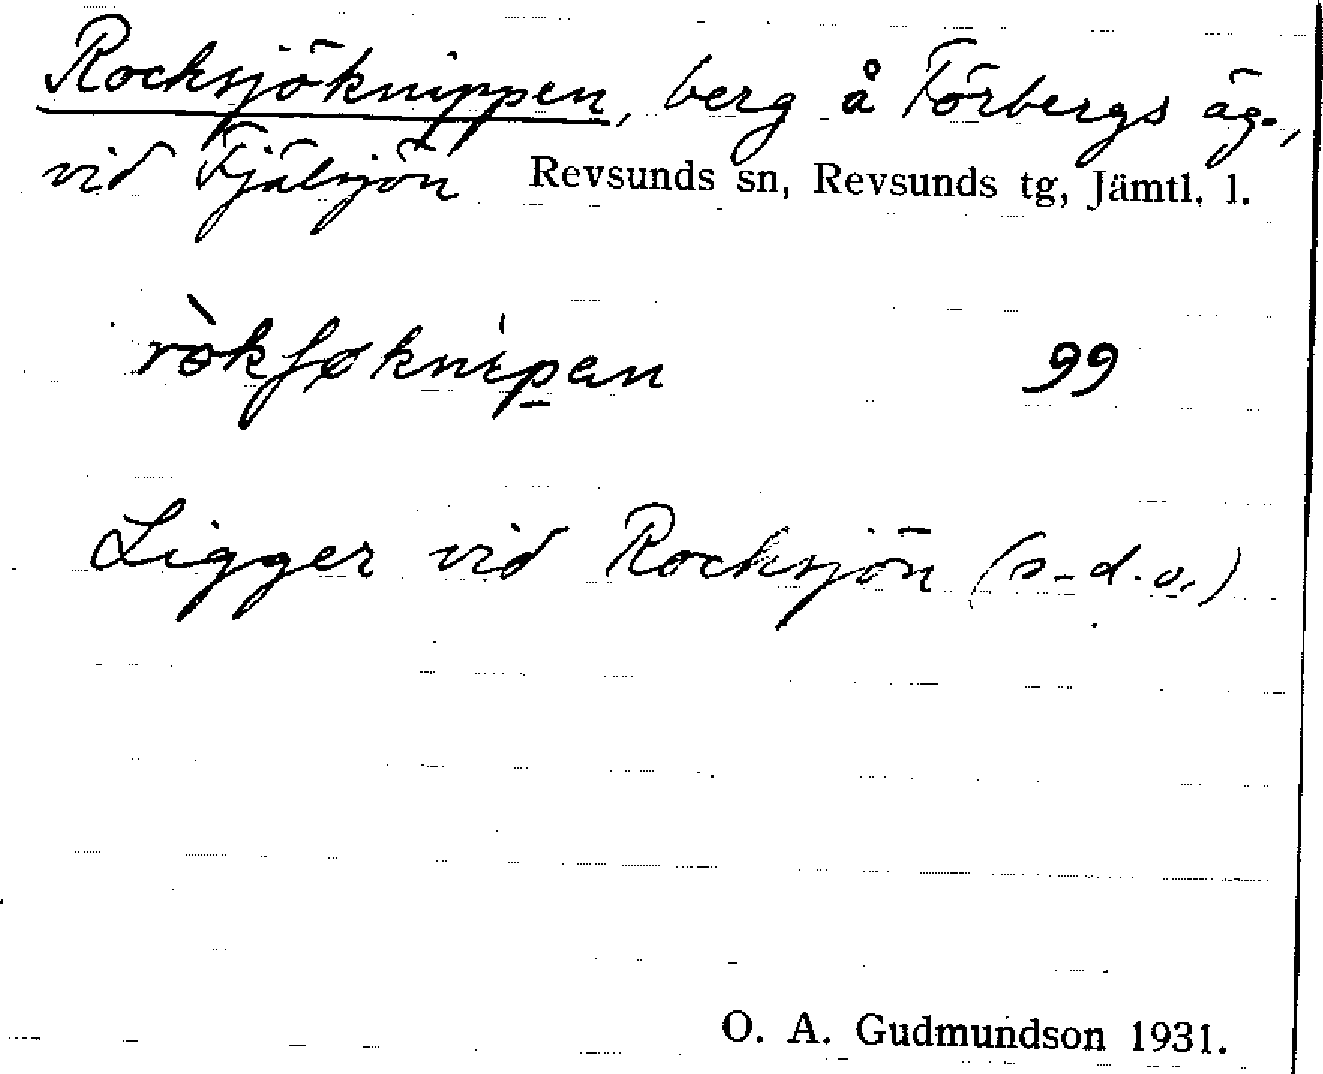 Rocksjöknippen, berg å Förbergs äg.,
vid Fjälsjön Revsunds sn, Revsunds tg, Jämtl. l.
99
Ligger vid Rocksjön (s.d.o.)
O. A. Gudmundson 1931.